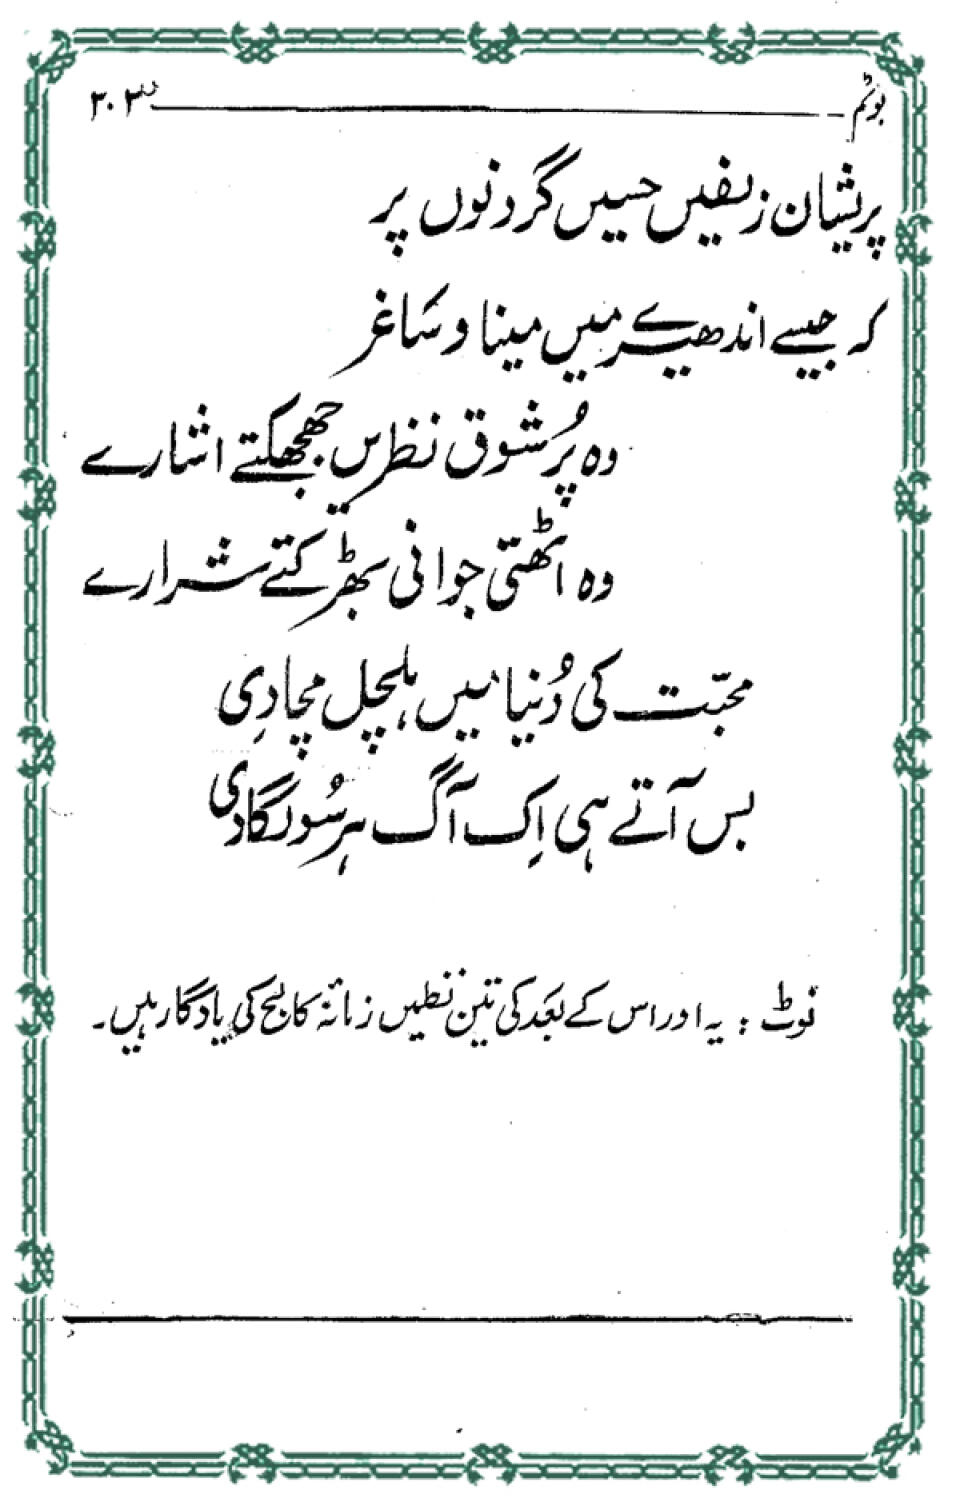 بوٹم ۳۰۳
پریشان زلفیں حسیں گردنوں پر
کہ جیسے اندھیرے میں مینا و ساغر
وہ پُرشوق نظریں جھجھکتے اشارے
وہ اٹھتی جوانی بھڑکتے شرارے
محبّت کی دُنیا میں ہلچل مچا دِی
بس آتے ہی اِک آگ ہر سُو لگا دی
نوٹ : یہ اور اس کے بعد کی تین نظمیں زمانۂ کالج کی یادگار ہیں۔